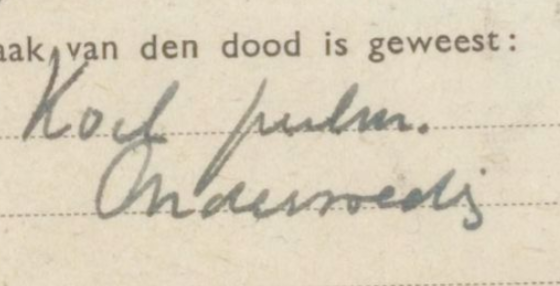 aak van den dood is geweest:
Koch pulm.
Ondervoeding